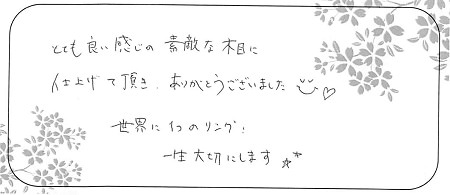 とても良い感じの素敵な木目に
仕上げて頂き、ありがとうございました
世界に1つのリング!
一生大切にします